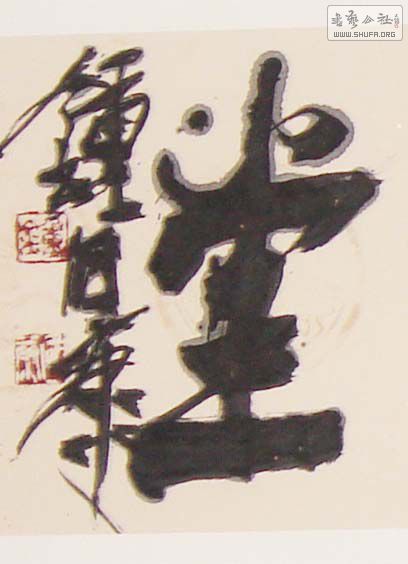 書藝公社
WWW.SHUFA.ORG
堂
鍾國康